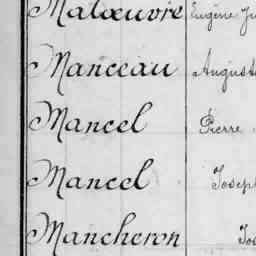 Malœuvre Eugène
Manceau Auguste
Mancel Pierre
Mancel Joseph
Mancheron